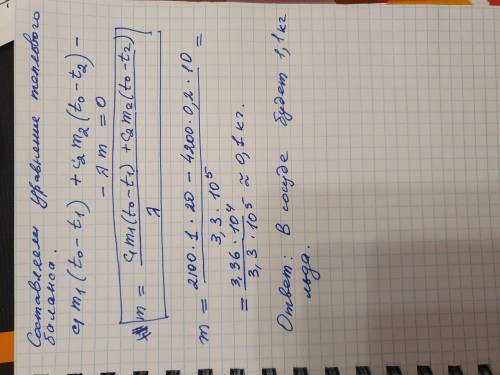 Составляем уравнение теплового
баланса.
c₁ m₁ (t₀ - t₁) + c₂ m₂ (t₀ - t₂) -
- λ m = 0
m = c₁ m₁ (t₀ - t₁) + c₂ m₂ (t₀ - t₂) / λ
m = 2100 · 1 · 20 - 4200 · 0,2 · 10 / 3,3 · 10⁵ =
= 3,36 · 10⁴ / 3,3 · 10⁵ ≈ 0,1 кг.
Ответ: В сосуде будет 1,1 кг
льда.